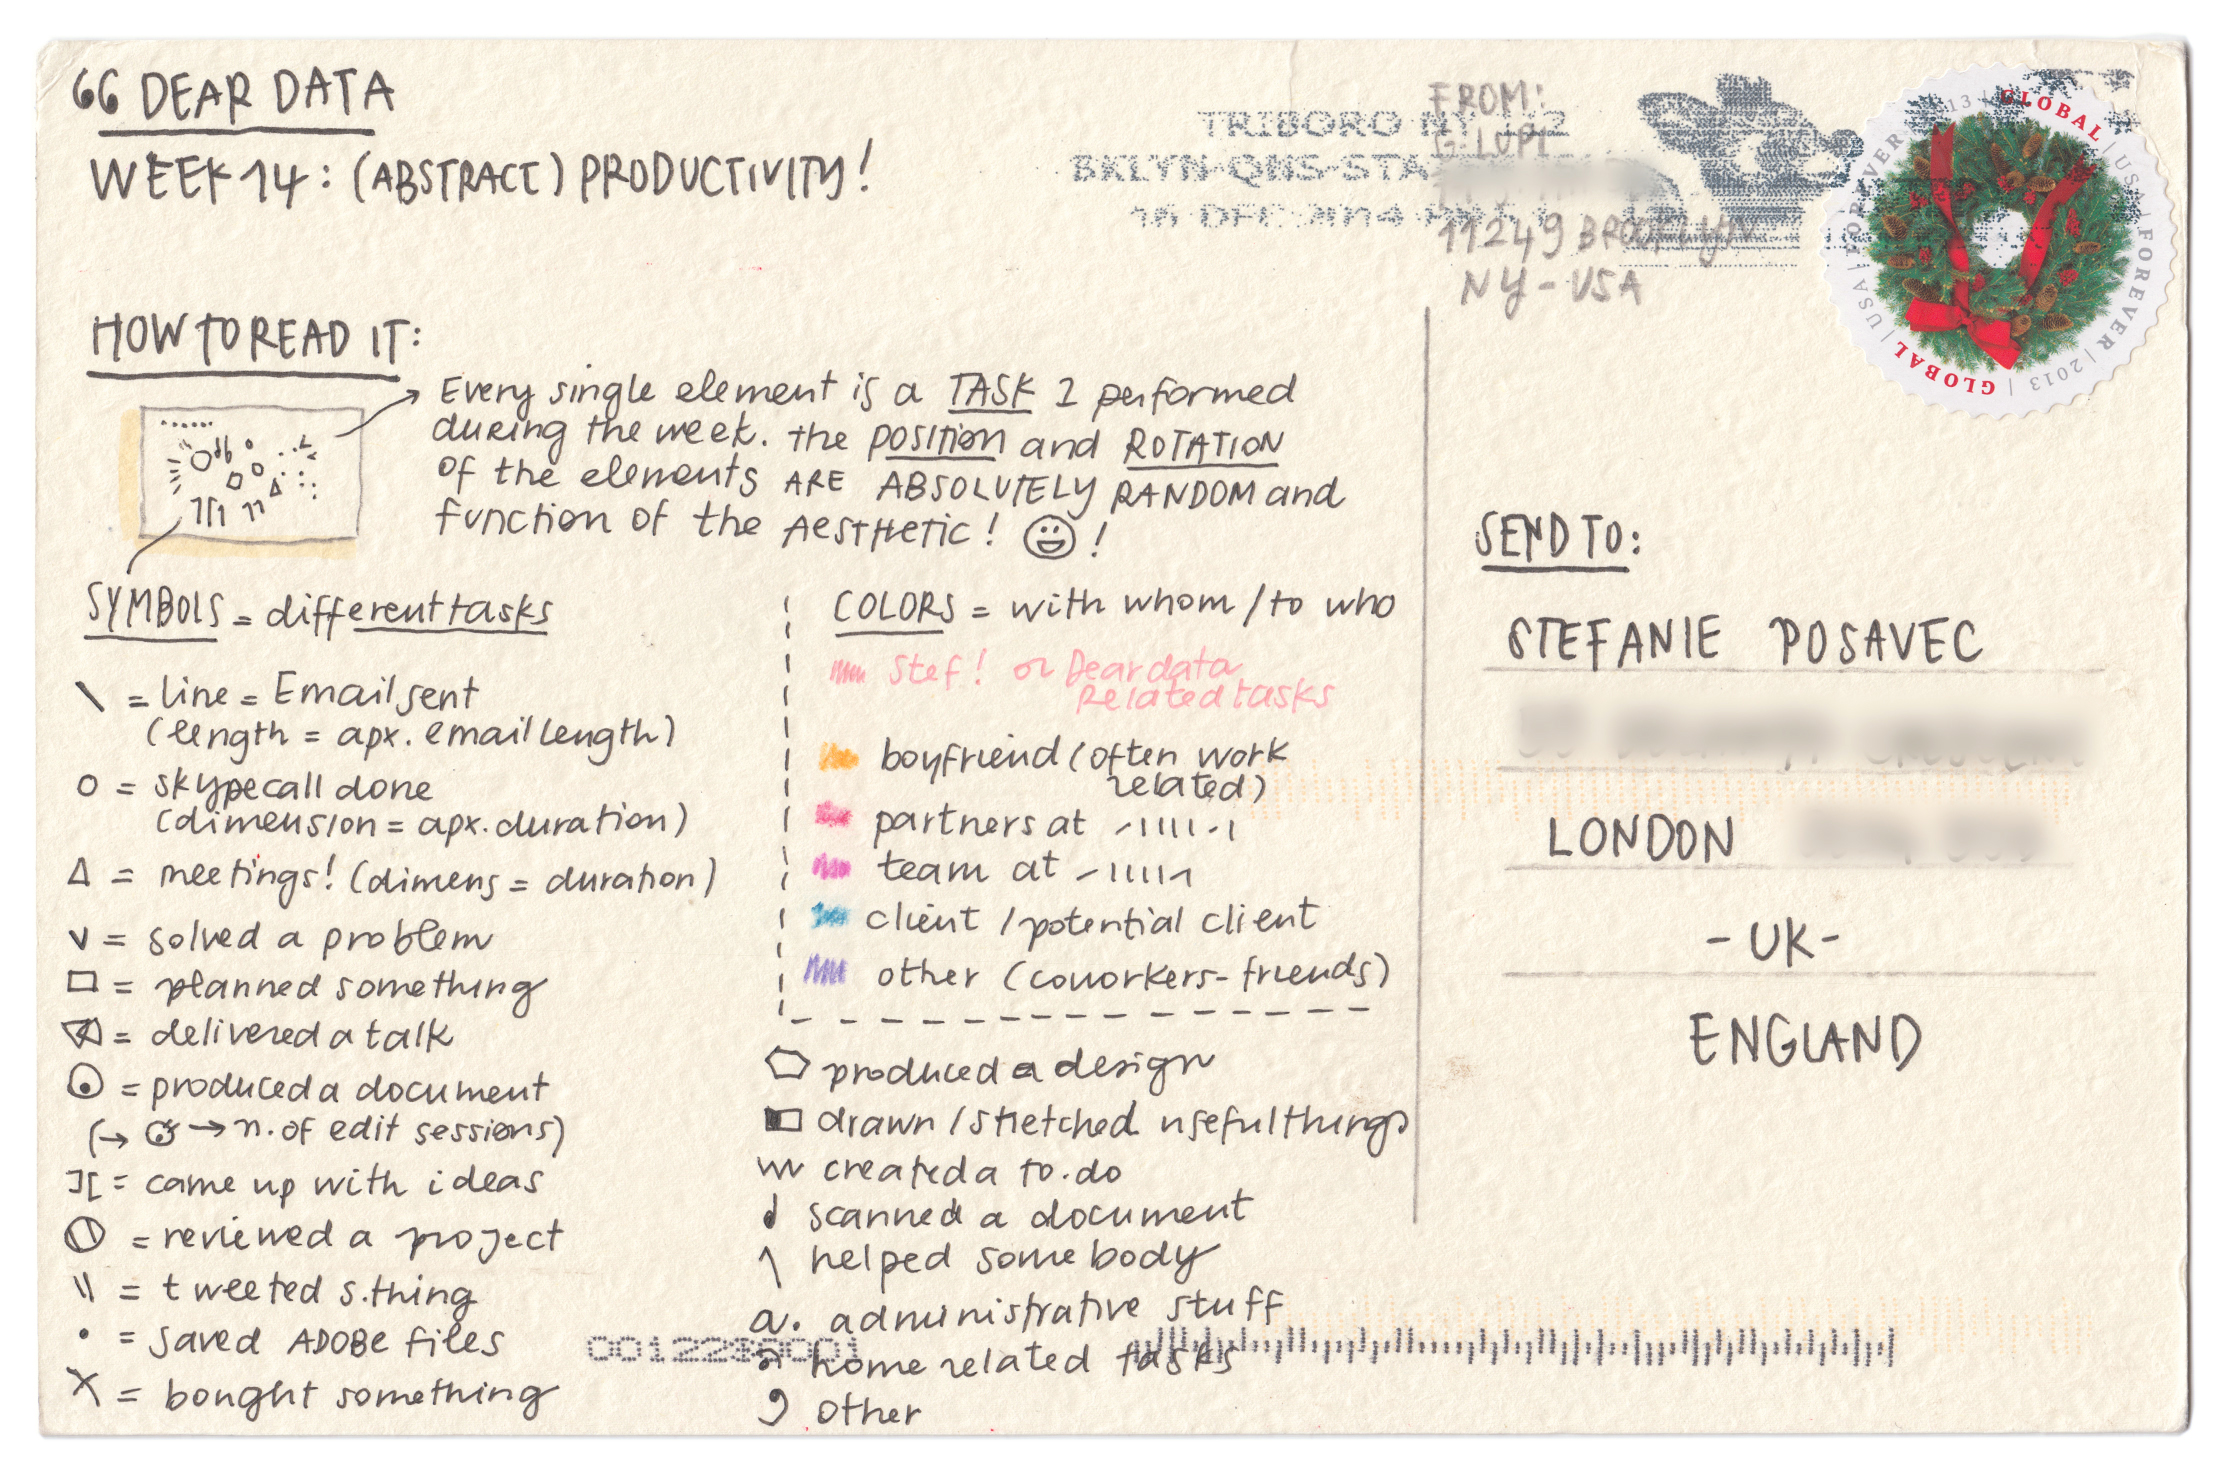 GG DEAR DATA
WEEK 14: (ABSTRACT) PRODUCTIVITY!
TRIBORO NY 112
BKLYN-QNS-STA
16 DEC 2014
FROM:
G. LUPI
11249 BROOKLYN
NY - USA
GLOBAL | USA | FOREVER | 2013 | GLOBAL | USA | FOREVER | 2013 |
HOW TO READ IT:
Every single element is a TASK I performed
during the week. The POSITION and ROTATION
of the elements ARE ABSOLUTELY RANDOM and
function of the AESTHETIC! !
SYMBOLS = different tasks
\ = line = Email sent
(length = apx. email length)
O = skypecall done
(dimension = apx. duration)
Δ = meetings! (dimens = duration)
v = solved a problem
□ = planned something
= delivered a talk
= produced a document
(→ → n. of edit sessions)
][ = came up with ideas
= reviewed a project
\\ = tweeted s.thing
• = saved ADOBE files
X = bought something
COLORS = with whom / to who
Stef! or Dear data
Related tasks
boyfriend (often work
related)
partners at
team at
client / potential client
other (coworkers - friends)
produced a design
drawn / stretched useful things
created a to.do
scanned a document
helped somebody
a. administrative stuff
home related tasks
other
SEND TO:
STEFANIE POSAVEC
LONDON
- UK -
ENGLAND